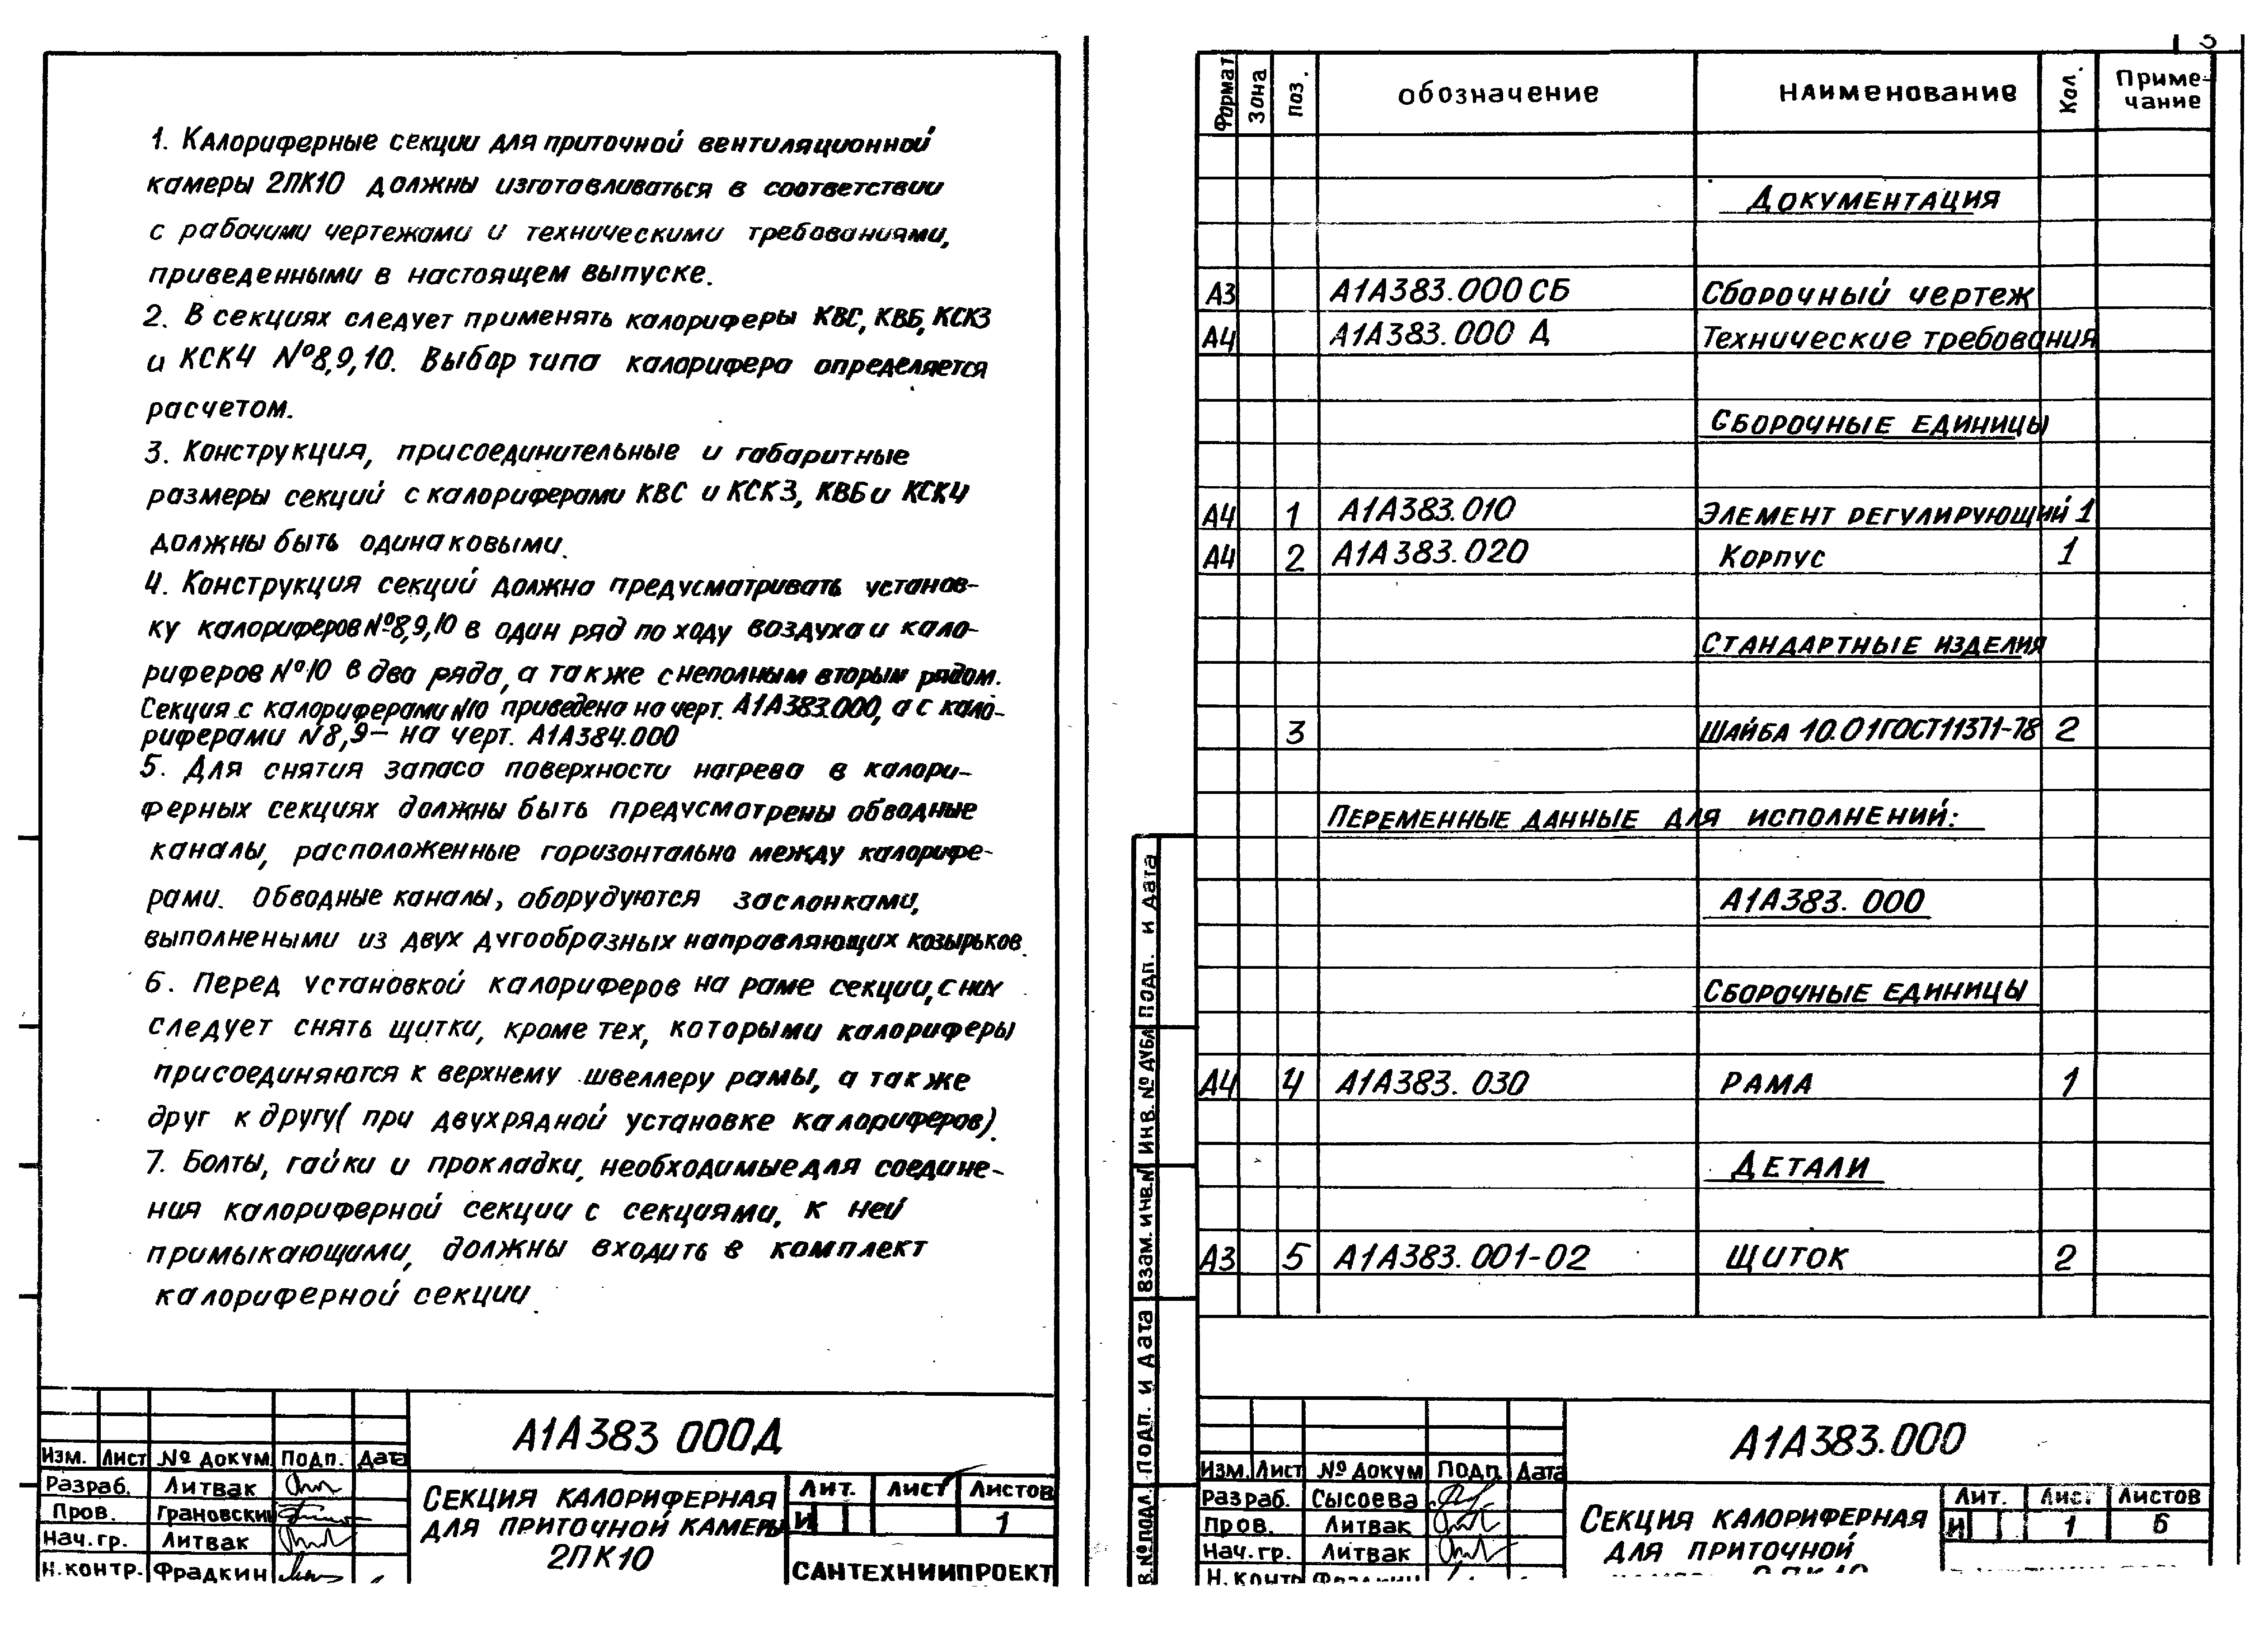 1. Калориферные секции для приточной вентиляционной
камеры 2ПК10 должны изготавливаться в соответствии
с рабочими чертежами и техническими требованиями,
приведенными в настоящем выпуске.
2. В секциях следует применять калориферы КВС, КВБ, КСК3
и КСК4 №8,9,10. Выбор типа калорифера определяется
расчетом.
3. Конструкция, присоединительные и габаритные
размеры секций с калориферами КВС и КСК3, КВБ и КСК4
должны быть одинаковыми.
4. Конструкция секций должна предусматривать установ-
ку калориферов №8,9,10 в один ряд по ходу воздуха и кало-
риферов №10 в два ряда, а также с неполным вторым рядом.
Секция с калориферами №10 приведена на черт. А1А383.000, а с кало-
риферами №8,9 – на черт. А1А384.000
5. Для снятия запаса поверхности нагрева в калори-
ферных секциях должны быть предусмотрены обводные
каналы, расположенные горизонтально между калорифе-
рами. Обводные каналы, оборудуются заслонками,
выполнеными из двух дугообразных направляющих козырьков.
6. Перед установкой калориферов на раме секции, с них
следует снять щитки, кроме тех, которыми калориферы
присоединяются к верхнему швеллеру рамы, а также
друг к другу (при двухрядной установке калориферов).
7. Болты, гайки и прокладки, необходимые для соедине-
ния калориферной секции с секциями, к ней
примыкающими, должны входить в комплект
калориферной секции.
А1А383 000Д
Изм. Лист № докум Подп. Дата
Разраб. Литвак
Пров. Грановский
Нач.гр. Литвак
Н.контр. Фрадкин
Секция калориферная
для приточной камеры
2ПК10
Лит. Лист Листов
И 1
САНТЕХНИИПРОЕКТ
3
Формат Зона Поз. Обозначение Наименование Кол. Приме-
чание
Документация
А3 А1А383.000 СБ Сборочный чертеж
А4 А1А383.000 Д Технические требования
Сборочные единицы
А4 1 А1А383.010 Элемент регулирующий 1
А4 2 А1А383.020 Корпус 1
Стандартные изделия
3 Шайба 10.01 ГОСТ 11371-78 2
Переменные данные для исполнений:
А1А383.000
Сборочные единицы
А4 4 А1А383.030 Рама 1
Детали
А3 5 А1А383.001-02 Щиток 2
Подп. и дата
Инв.№ дубл
Взам. инв.№
Подп. и дата
В.№ подл.
А1А383.000
Изм. Лист № докум Подп Дата
Разраб. Сысоева
Пров. Литвак
Нач.гр. Литвак
Н.контр Фрадкин
Секция калориферная
для приточной
Лит. Лист Листов
И 1 6